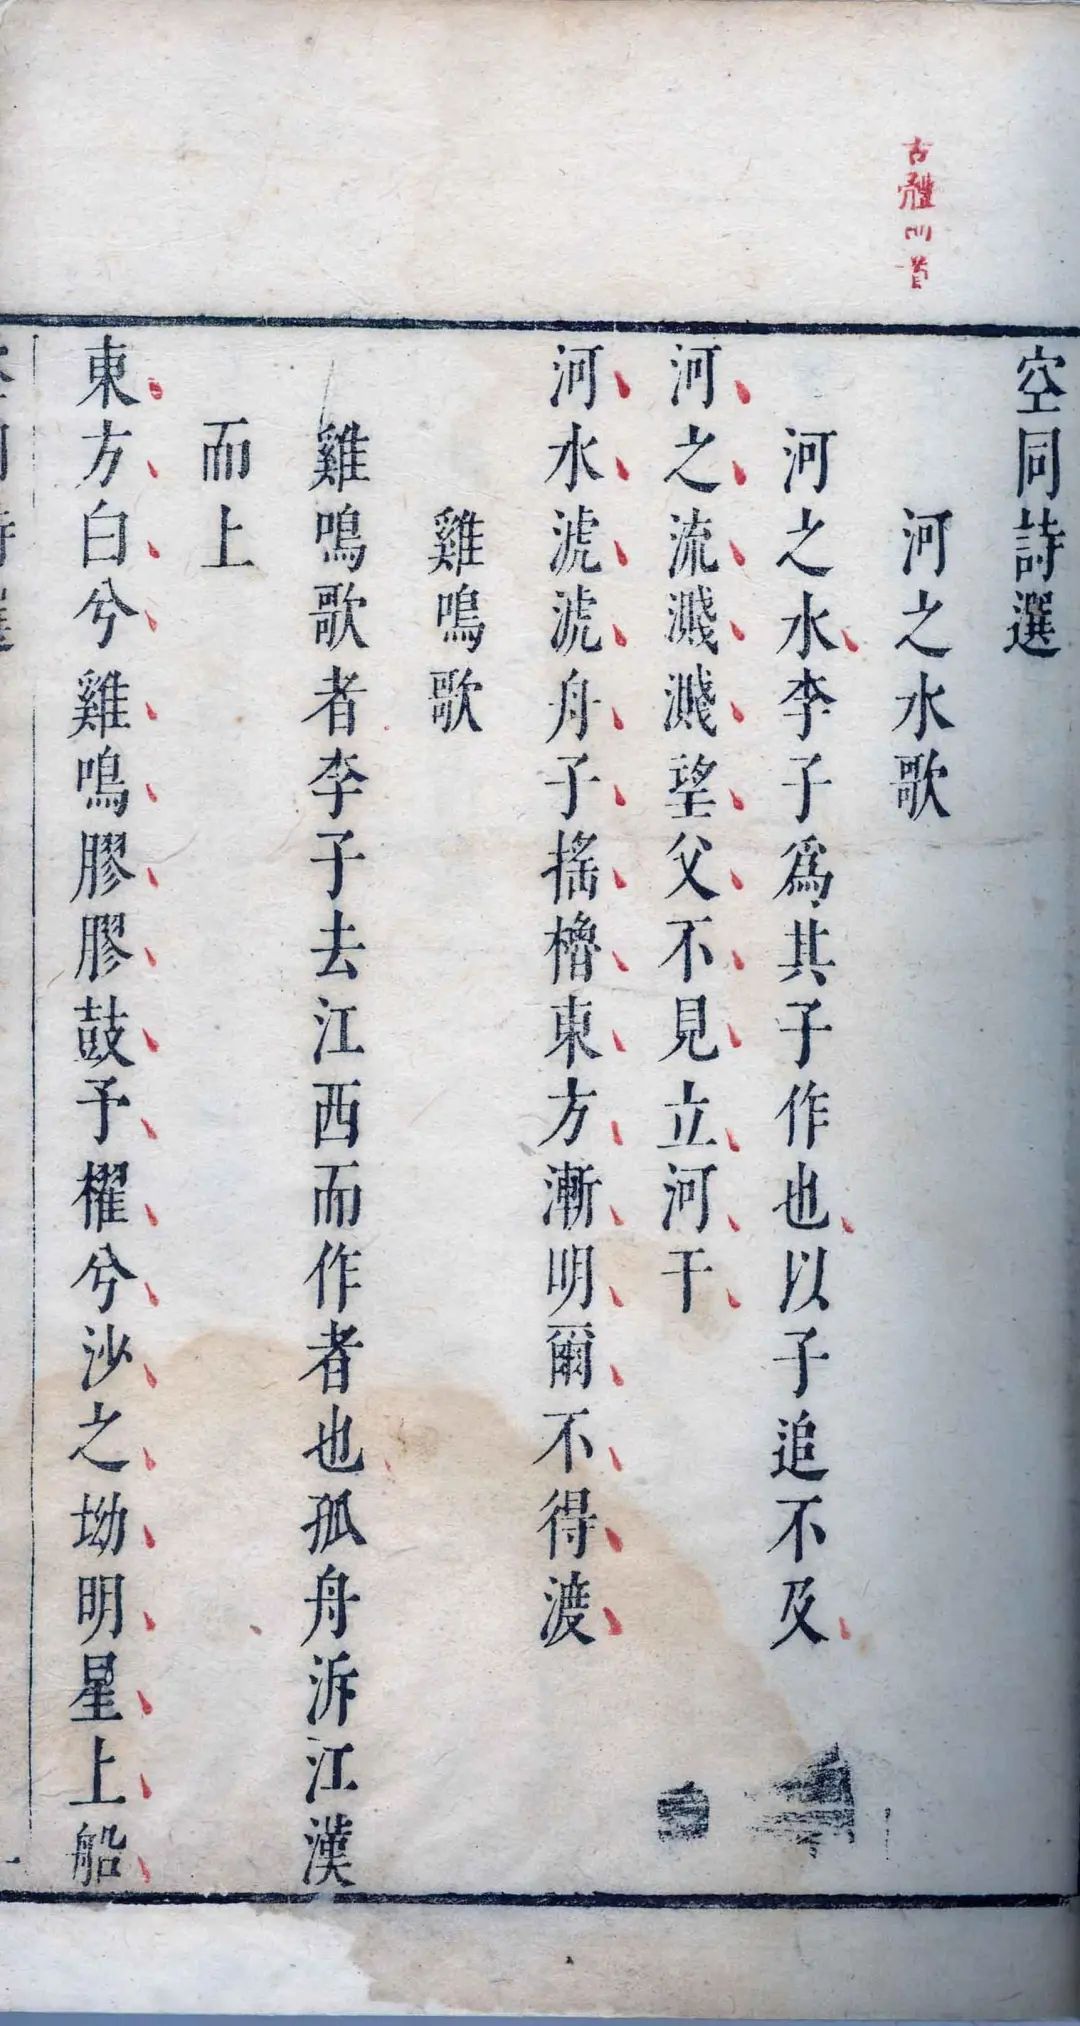 古體四首
空同詩選
河之水歌
河之水李子爲其子作也以子追不及
河之流濺濺望父不見立河干
河水淲淲舟子搖櫓東方漸明爾不得渡
雞鳴歌
雞鳴歌者李子去江西而作者也孤舟泝江漢
而上
東方白兮雞鳴膠膠鼓予櫂兮沙之坳明星上船